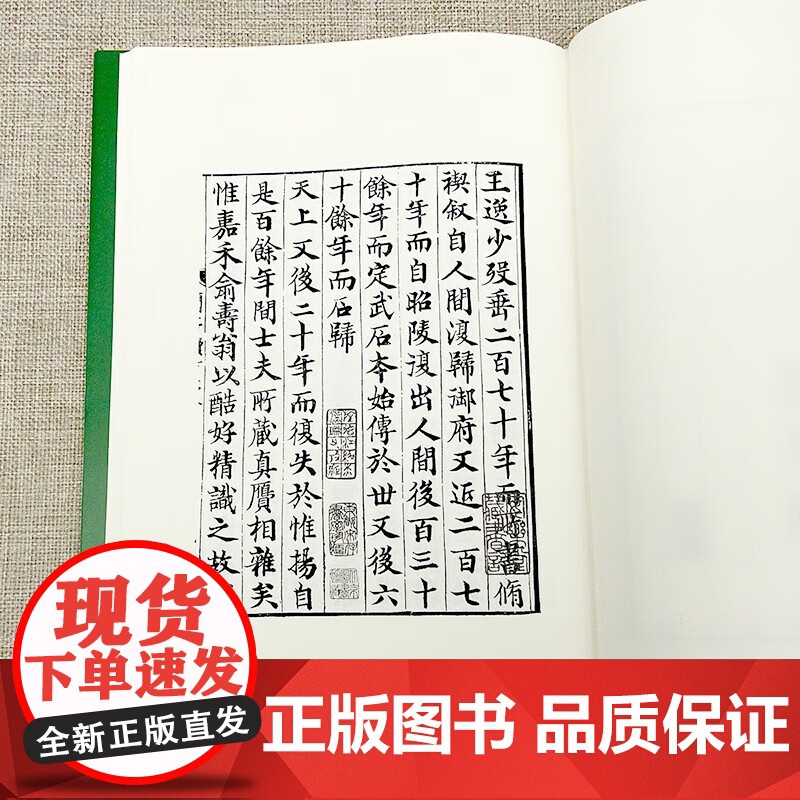 王逸少歿垂二百七十年而書脩
禊叙自人間復歸御府又近二百七
十年而自昭陵復出人間後百三十
餘年而定武石夲始傳於世又後六
十餘年而石歸
天上又後二十年而復失於惟揚自
是百餘年間士夫所藏真贗相雜矣
惟嘉禾俞壽翁以酷好精識之故
现货
全新正版直发
正版图书 品质保证